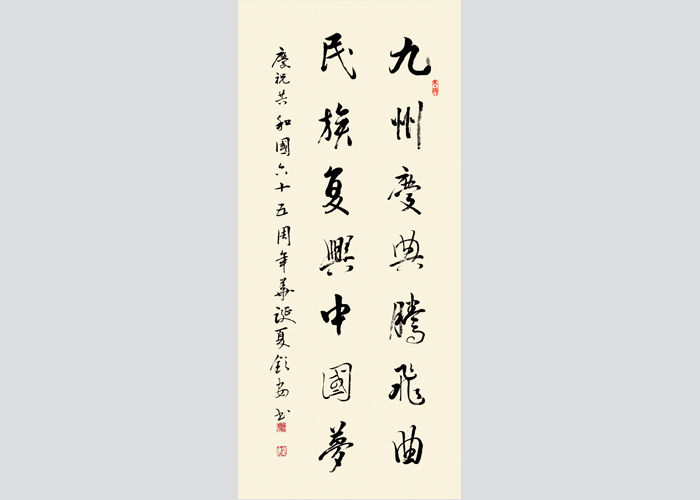 九州慶典騰飛曲
民族复興中國夢
慶祝共和國六十五周年華誕夏欽安书